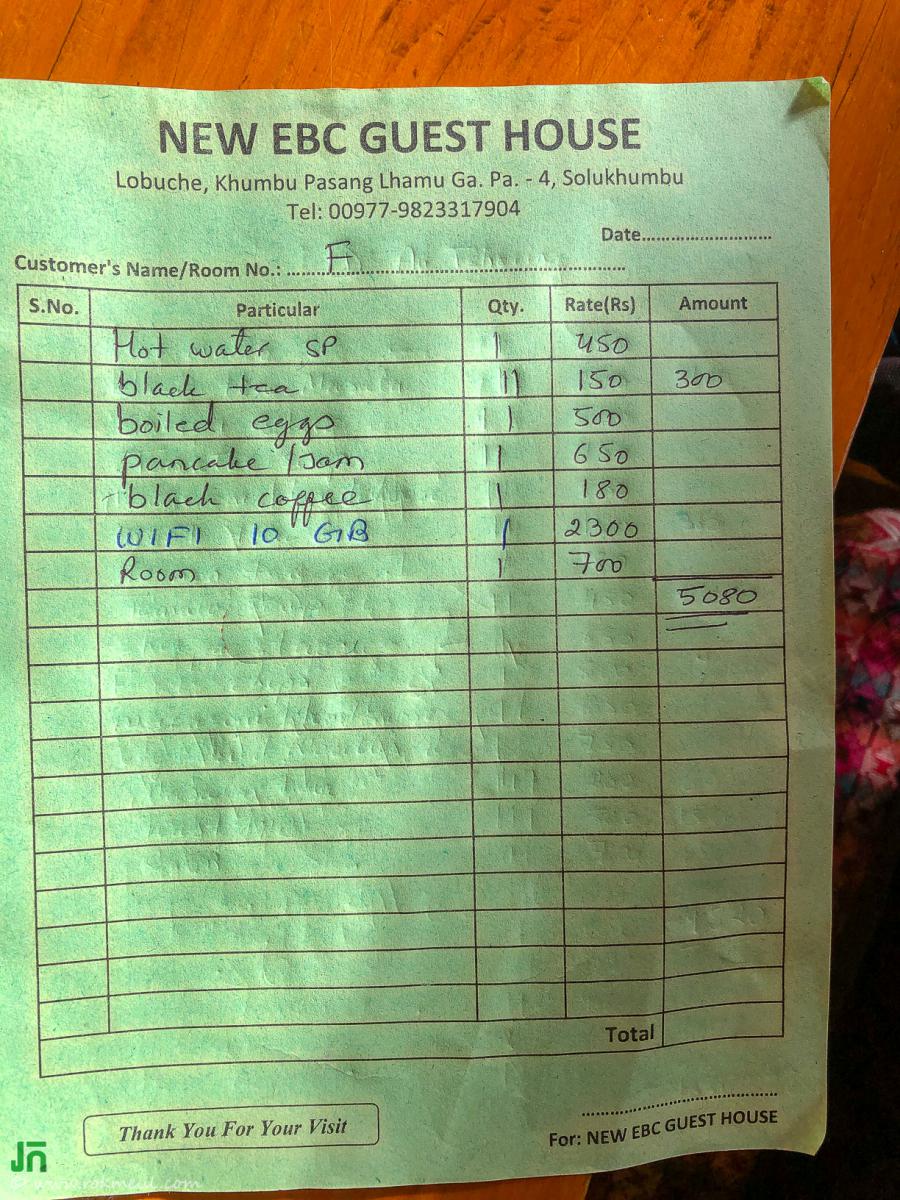 NEW EBC GUEST HOUSE
Lobuche, Khumbu Pasang Lhamu Ga. Pa. - 4, Solukhumbu
Tel: 00977-9823317904
Date...........................
Customer's Name/Room No.: ........F........................................................
S.No. Particular Qty. Rate(Rs) Amount
Hot water SP 1 450
black tea 11 150 300
boiled eggs 1 500
pancake /Jam 1 650
black coffee 1 180
WIFI 10 GB 1 2300
Room 1 700
5080
Total
Thank You For Your Visit
For: NEW EBC GUEST HOUSE
Jn